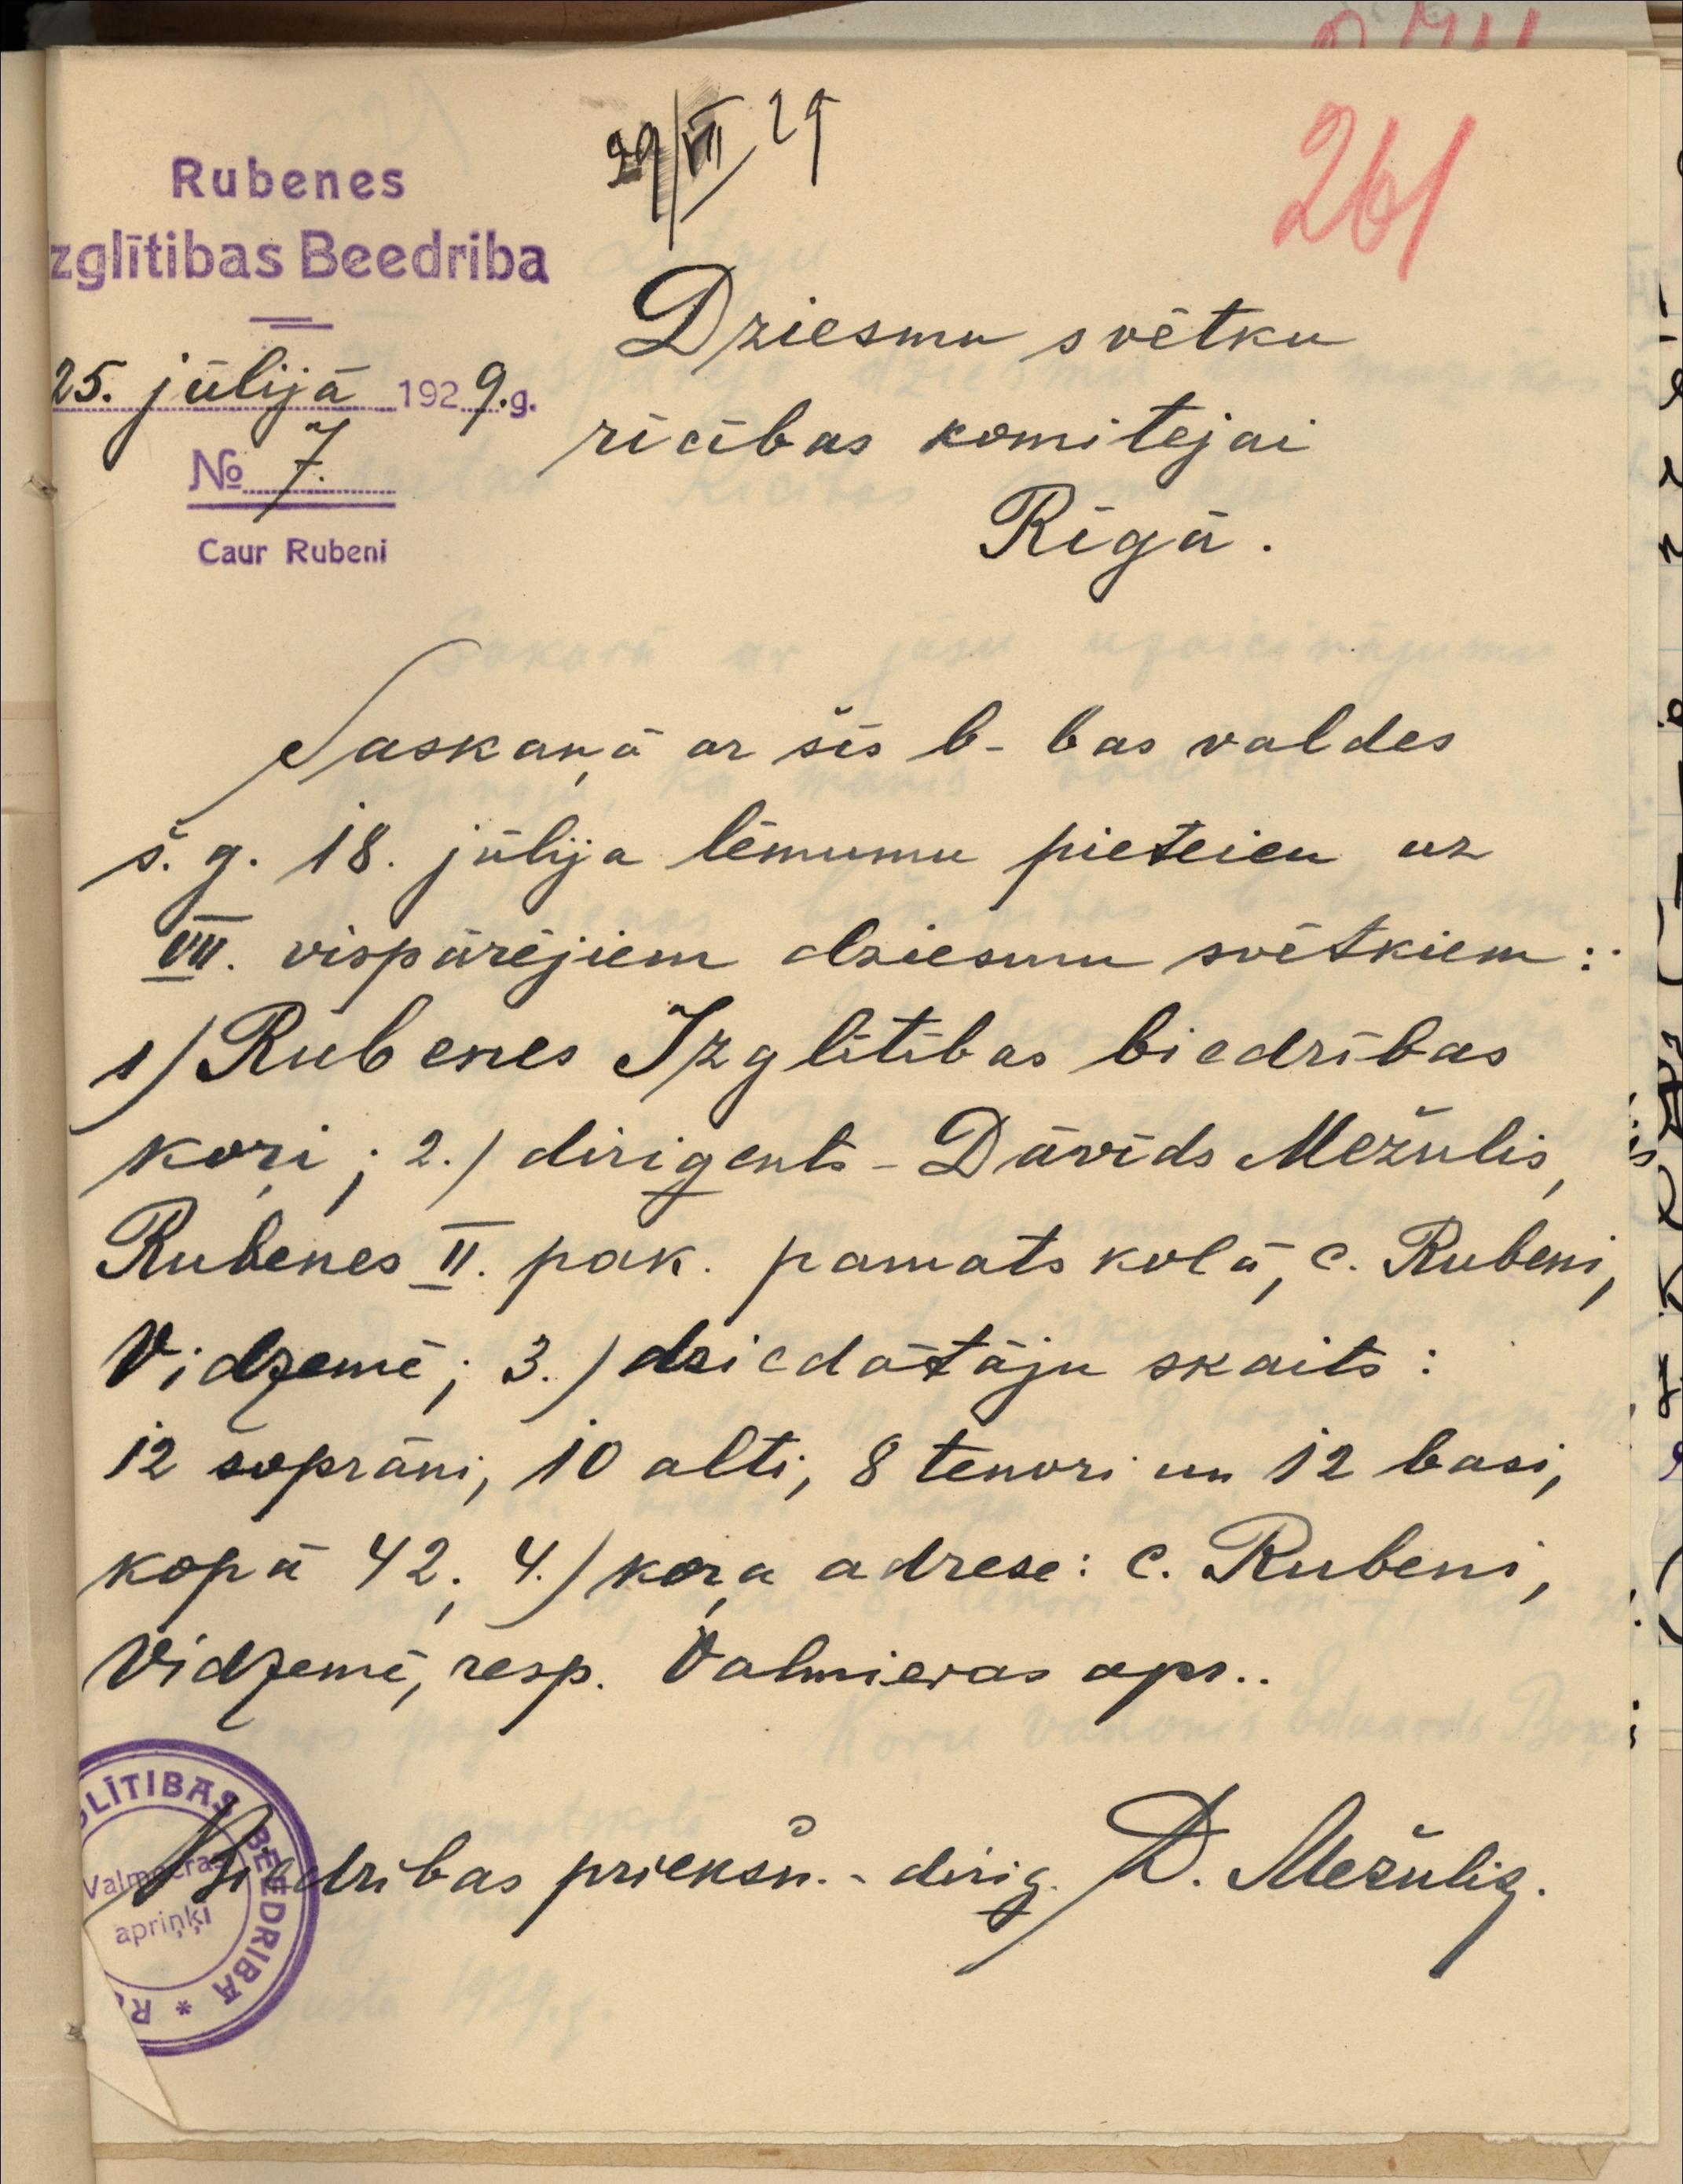 29/VII 29
261
Rubenes
zglītibas Beedriba
25. jūlijā 1929.g.
No 7.
Caur Rubeni
Dziesmu svētku
rīcības komitejai
Rīgā.
Saskaņā ar šīs b-bas valdes
š. g. 18. jūlija lēmumu pieteicu uz
VII. vispārējiem dziesmu svētkiem:
1) Rubenes Izglītības biedrības
koŗi; 2.) dirigents - Dāvids Mežulis,
Rubenes II. pak. pamatskolā, c. Rubeni,
Vidzemē; 3.) dziedātāju skaits:
12 soprāni, 10 alti, 8 tenori un 12 basi,
kopā 42; 4.) koŗa adrese: c. Rubeni,
Vidzemē, resp. Valmieras apr..
Biedrības priekšn. - dirig. D. Mežulis.
GLĪTIBAS BEEDRIBA * R
Valmeeras
apriņķī